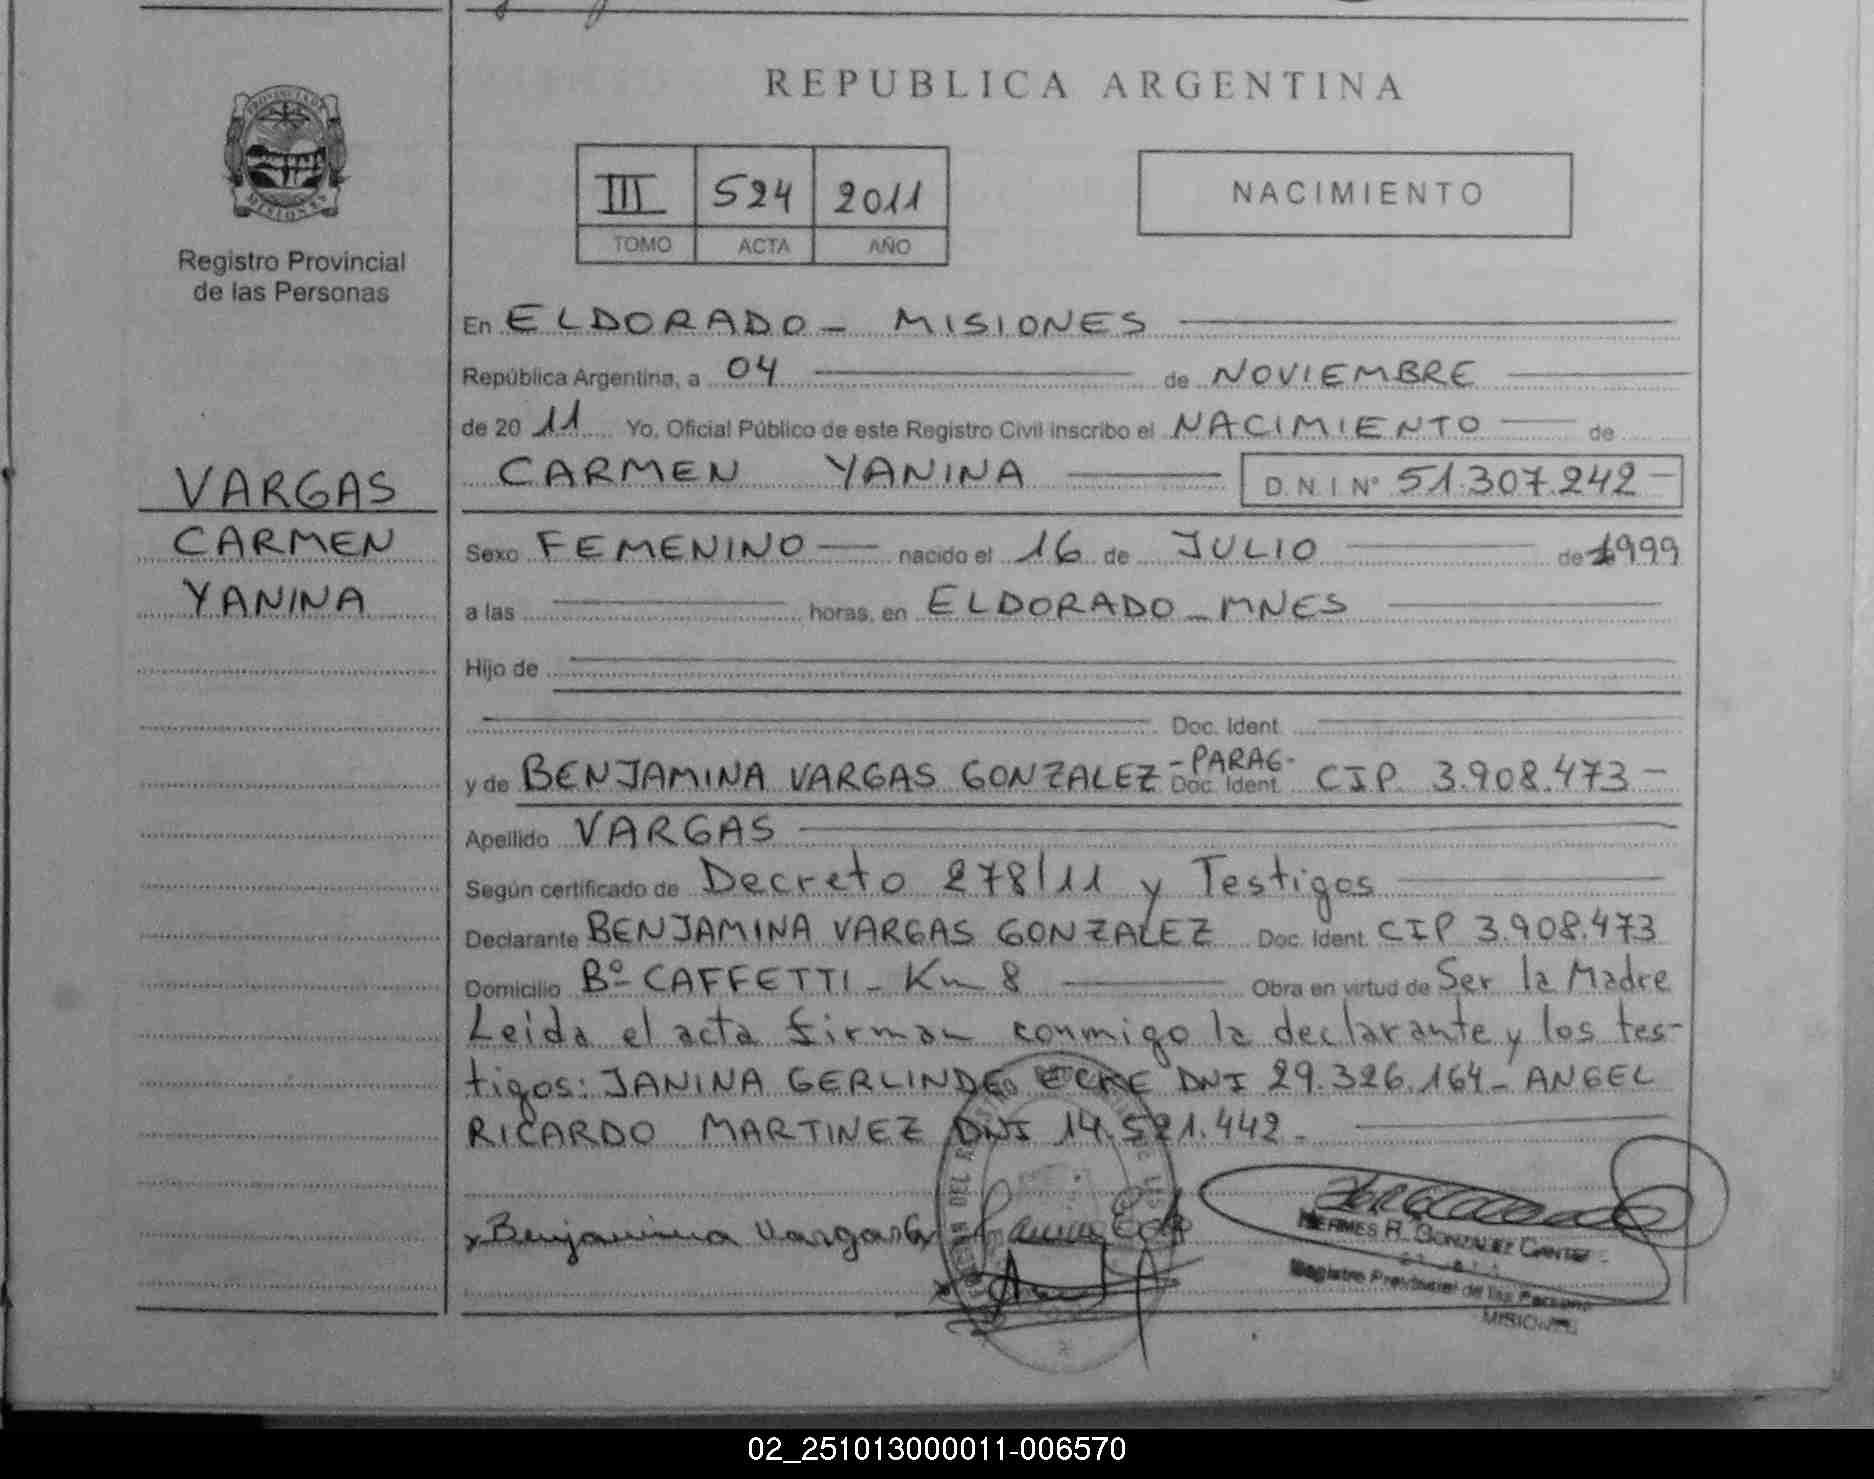 REPUBLICA ARGENTINA
PROVINCIA DE
MISIONES
Registro Provincial
de las Personas
III 524 2011
TOMO ACTA AÑO
NACIMIENTO
En ELDORADO - MISIONES
República Argentina, a 04 de NOVIEMBRE
de 20 11 Yo, Oficial Público de este Registro Civil inscribo el NACIMIENTO de
CARMEN YANINA D.N.I Nº 51.307.242-
VARGAS
CARMEN
YANINA
Sexo FEMENINO nacido el 16 de JULIO de 1999
a las horas, en ELDORADO - MNES
Hijo de
Doc. Ident.
y de BENJAMINA VARGAS GONZALEZ -PARAG- Doc. Ident. CIP 3.908.473-
Apellido VARGAS
Según certificado de Decreto 278/11 y Testigos
Declarante BENJAMINA VARGAS GONZALEZ Doc. Ident. CIP 3.908.473
Domicilio Bº CAFFETTI - Km 8 Obra en virtud de Ser la Madre
Leida el acta firman conmigo la declarante y los tes-
tigos: JANINA GERLINDE ECKE DNI 29.326.164- ANGEL
RICARDO MARTINEZ DNI 14.521.442-
Benjamina Vargas G
HERMES R. GONZALEZ
Registro Provincial de las Personas
MISIONES
02_251013000011-006570